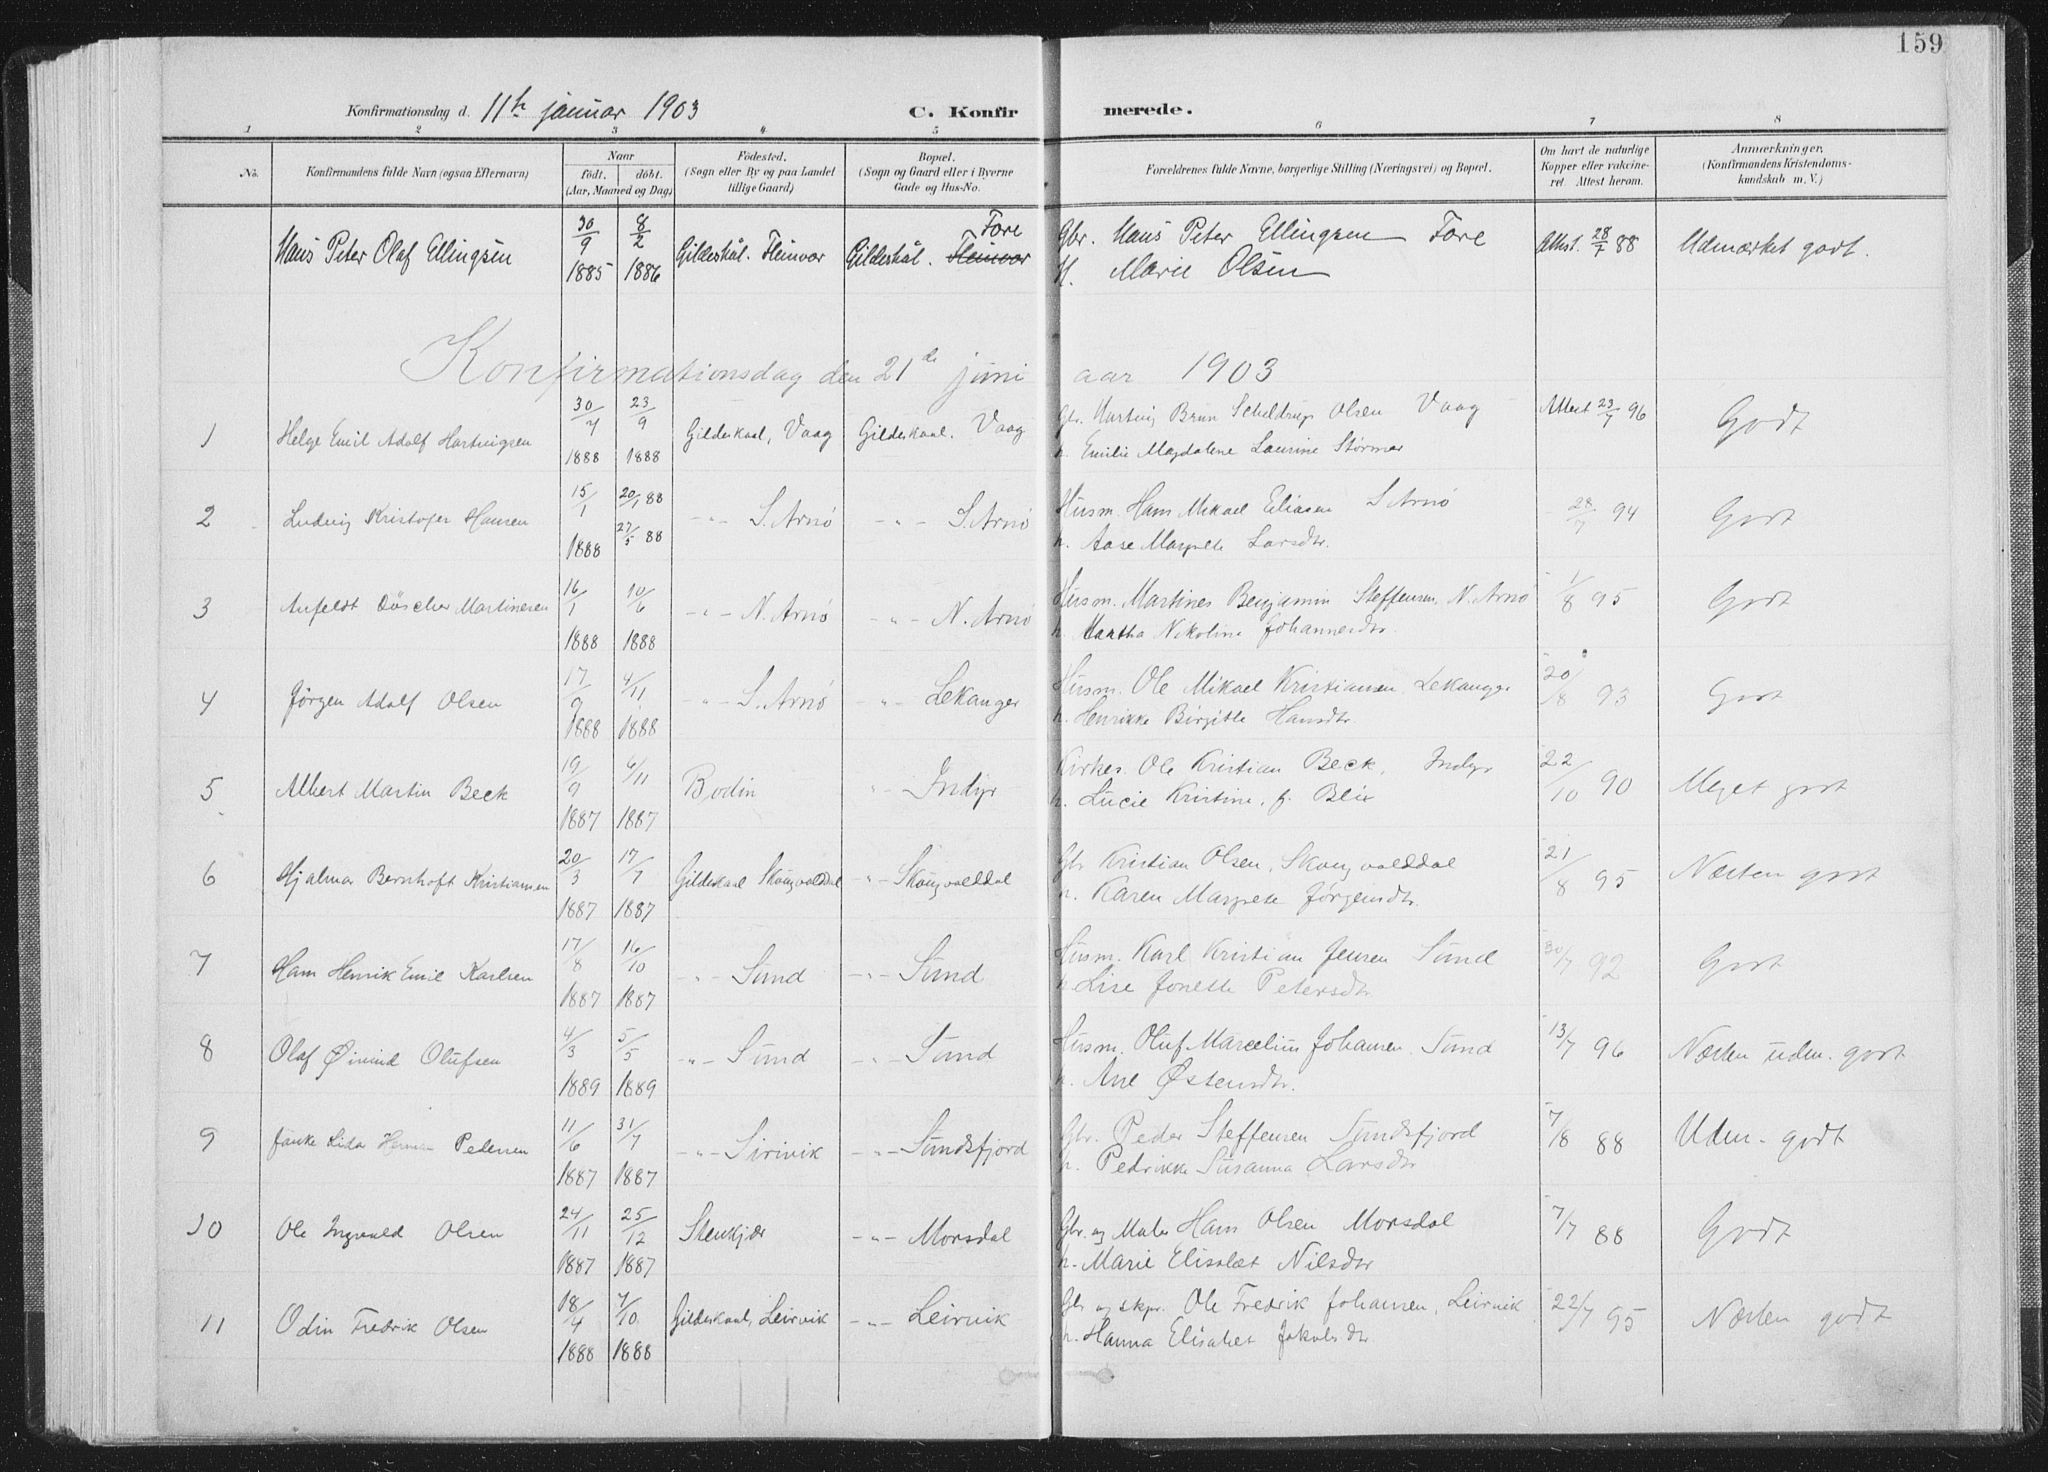 159
Konfirmationsdag d. 11te januar 1903 C. Konfirmerede.
1 2 3 4 5 6 7 8
No. Konfirmandens fulde Navn (ogsaa Efternavn) Naar født. døbt. (Aar, Maaned og Dag) Fødested. (Sogn eller By og paa Landet tillige Gaard) Bopæl. (Sogn og Gaard eller i Byerne Gade og Hus-No. Forældrenes fulde Navne, borgerlige Stilling (Næringsvei) og Bopæl. Om havt de naturlige Kopper eller vakcineret. Attest herom. Anmærkninger. (Konfirmandens Kristendomskundskab m. V.)
Hans Peter Olaf Ellingsen 30/9 1885 8/2 1886 Gildeskål. Fleinvær Gildeskål. Fleinvær Fore Gbr. Hans Peter Ellingsen Fore Attest. 28/7 88 Udmærket godt.
H. Marie Olsen
Konfirmationsdag den 21de juni aar 1903
1 Helge Emil Adolf Hartvigsen 30/7 1888 23/9 1888 Gildeskaal, Vaag Gildeskaal. Vaag Gbr. Hartvig Brun Scheldrup Olsen Vaag Attest 23/7 96 Godt
h. Emilie Magdalene Laurine Størmer
2 Ludvig Kristofer Hansen 15/1 1888 20/1 88 27/5 88 -"- S. Arnø -"- S. Arnø Husm. Hans Mikael Eliasen S Arnø 28/7 94 Godt
h. Aase Margrete Larsdtr.
3 Anfeldt Döscher Martinesen 16/1 1888 10/6 1888 -"- N. Arnø -"- N. Arnø Husm. Martines Benjamin Steffensen, N. Arnø 1/8 95 Godt
h. Martha Nikoline Johannesdtr.
4 Jørgen Adolf Olsen 17/9 1888 4/11 1888 -"- S. Arnø -"- Lekanger Husm. Ole Mikael Kristiansen, Lekanger 20/8 93 Godt
h. Henrikke Birgitte Hansdtr.
5 Albert Martin Beck 19/9 1887 6/11 1887 Bodin "- Indyr Kirkes. Ole Kristian Beck, Indyr 22/10 90 Meget godt
h. Lucie Kristine, f. Blix
6 Hjalmar Bernhoft Kristiansen 20/3 1887 17/7 1887 Gildeskaal Skaugvolddal "- Skaugvolddal Gbr Kristian Olsen, Skaugvolddal 21/8 95 Næsten godt
h. Karen Margrete Jørgensdtr.
7 Hans Henrik Emil Karlsen 17/8 1887 16/10 1887 -"- Sund -"- Sund Husm. Karl Kristian Jensen Sund 30/7 92 Godt
h. Lise Jonette Petersdtr
8 Olaf Øivind Olufsen 4/3 1889 5/5 1889 "- Sund -"- Sund Husm. Oluf Marcelius Johansen. Sund 13/7 96 Næsten udm. godt
h. Ane Østensdtr.
9 Lida Pedersen 11/6 1887 31/7 1887 -"- Sirivik -"- Sundsfjord Gbr. Peder Steffensen Sundsfjord 7/8 88 Udm. godt
h. Pedrikke Susanna Larsdtr
10 Ole Ingvald Olsen 24/11 1887 25/12 1887 Stenkjær -"- Morsdal Gbr og Maler Hans Olsen Morsdal 7/7 88 Godt
h. Marie Elisabet Nilsdtr
11 Odin Fredrik Olsen 18/4 1888 7/10 1888 Gildeskaal, Leirvik -"- Leirvik Gbr og skpr. Ole Fredrik Johansen, Leirvik 22/7 95 Næsten godt
h. Hanna Elisabet Jakobsdtr